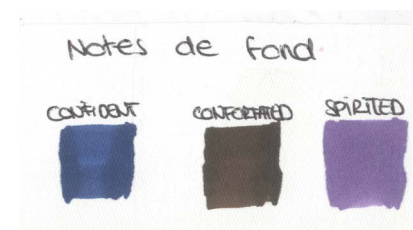 Notes de fond
CONFIDENT CONFORTATED SPIRITED